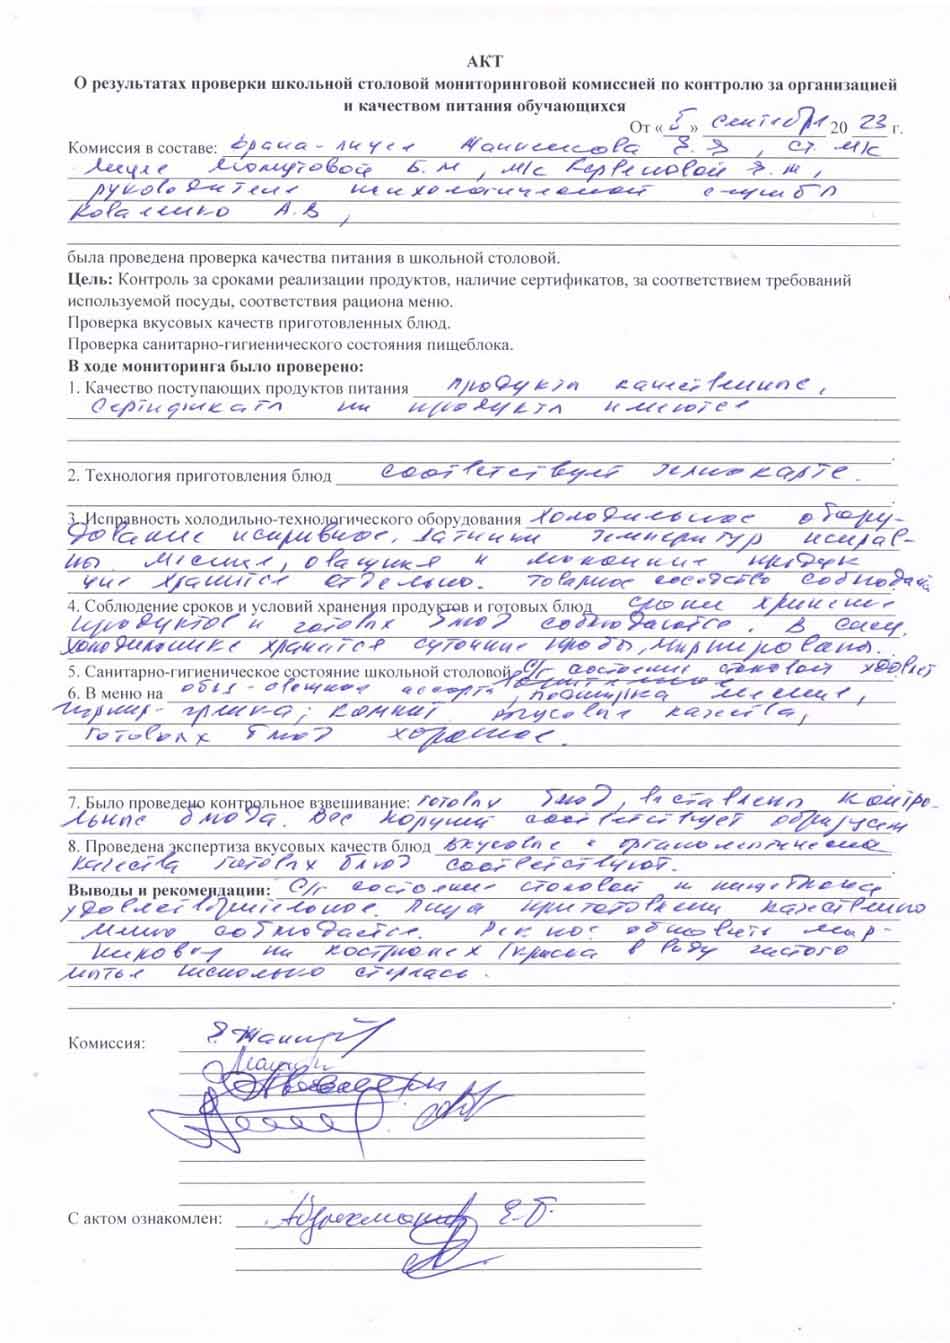 АКТ
О результатах проверки школьной столовой мониторинговой комиссией по контролю за организацией
и качеством питания обучающихся
От « » сентября 20 23 г.
Комиссия в составе: врача-лицея З.З , ст. м/с
лицея Б.М , м/с З.Ж ,
руководителя психологической службы
Коваленко А.В ,
была проведена проверка качества питания в школьной столовой.
Цель: Контроль за сроками реализации продуктов, наличие сертификатов, за соответствием требований
используемой посуды, соответствия рациона меню.
Проверка вкусовых качеств приготовленных блюд.
Проверка санитарно-гигиенического состояния пищеблока.
В ходе мониторинга было проверено:
1. Качество поступающих продуктов питания продукты качественные,
сертификаты на продукты имеются
2. Технология приготовления блюд соответствует технокарте.
3. Исправность холодильно-технологического оборудования Холодильное обору-
дование исправное. Датчики температур исправ-
ны. Мясные, овощные и молочные продук
ции хранятся отдельно. Товарное соседство соблюдается
4. Соблюдение сроков и условий хранения продуктов и готовых блюд сроки хранения
продуктов и готовых блюд соблюдаются. В спец.
холодильнике хранятся суточные пробы, маркированы.
5. Санитарно-гигиеническое состояние школьной столовой С/г состояние столовой удовлет
ворительное
6. В меню на обед - овощное ассорти, поджарка мясная,
гарнир - гречка; компот вкусовые качества,
готовых блюд хорошие.
7. Было проведено контрольное взвешивание: готовых блюд, выставлены контро-
льные блюда. Вес порций соответствует образцам
8. Проведена экспертиза вкусовых качеств блюд вкусовые и органолептические
качества готовых блюд соответствуют.
Выводы и рекомендации: С/г состояние столовой и пищеблока
удовлетворительное. Пища приготовлена качественно
меню соблюдается. обновить мар-
кировку на кастрюлях (краска в виду частого
мытья несколько стерлась.
Комиссия:
С актом ознакомлен: Е.Б.